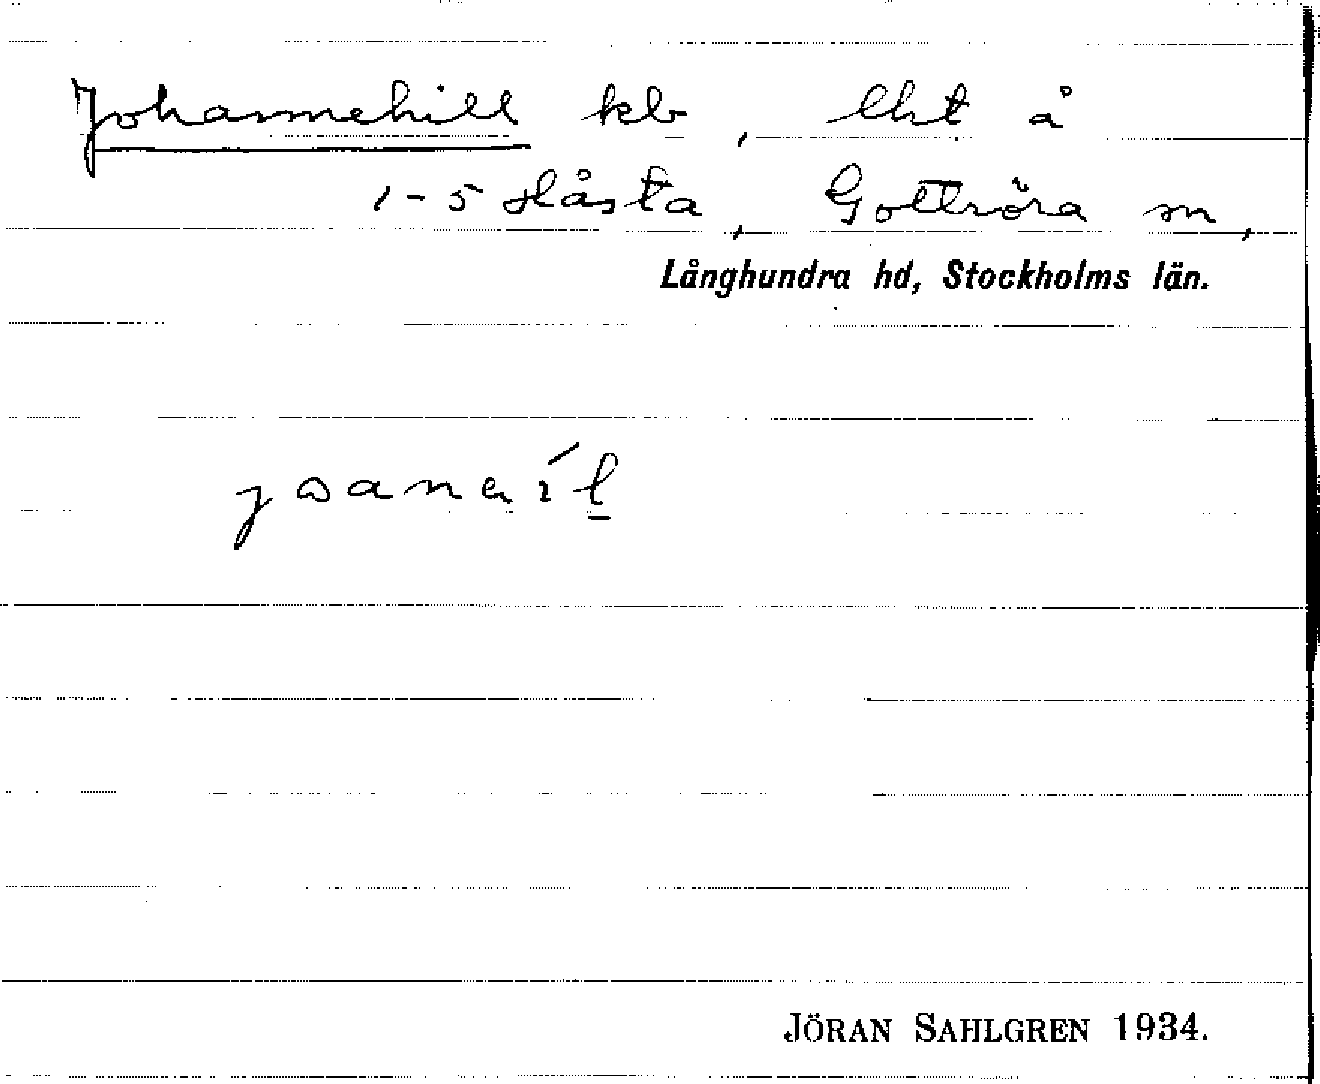 Johannehill kb, lht å
1-5 Håsta, Gottröra sn,
Långhundra hd, Stockholms län.
JÖRAN SAHLGREN 1934.